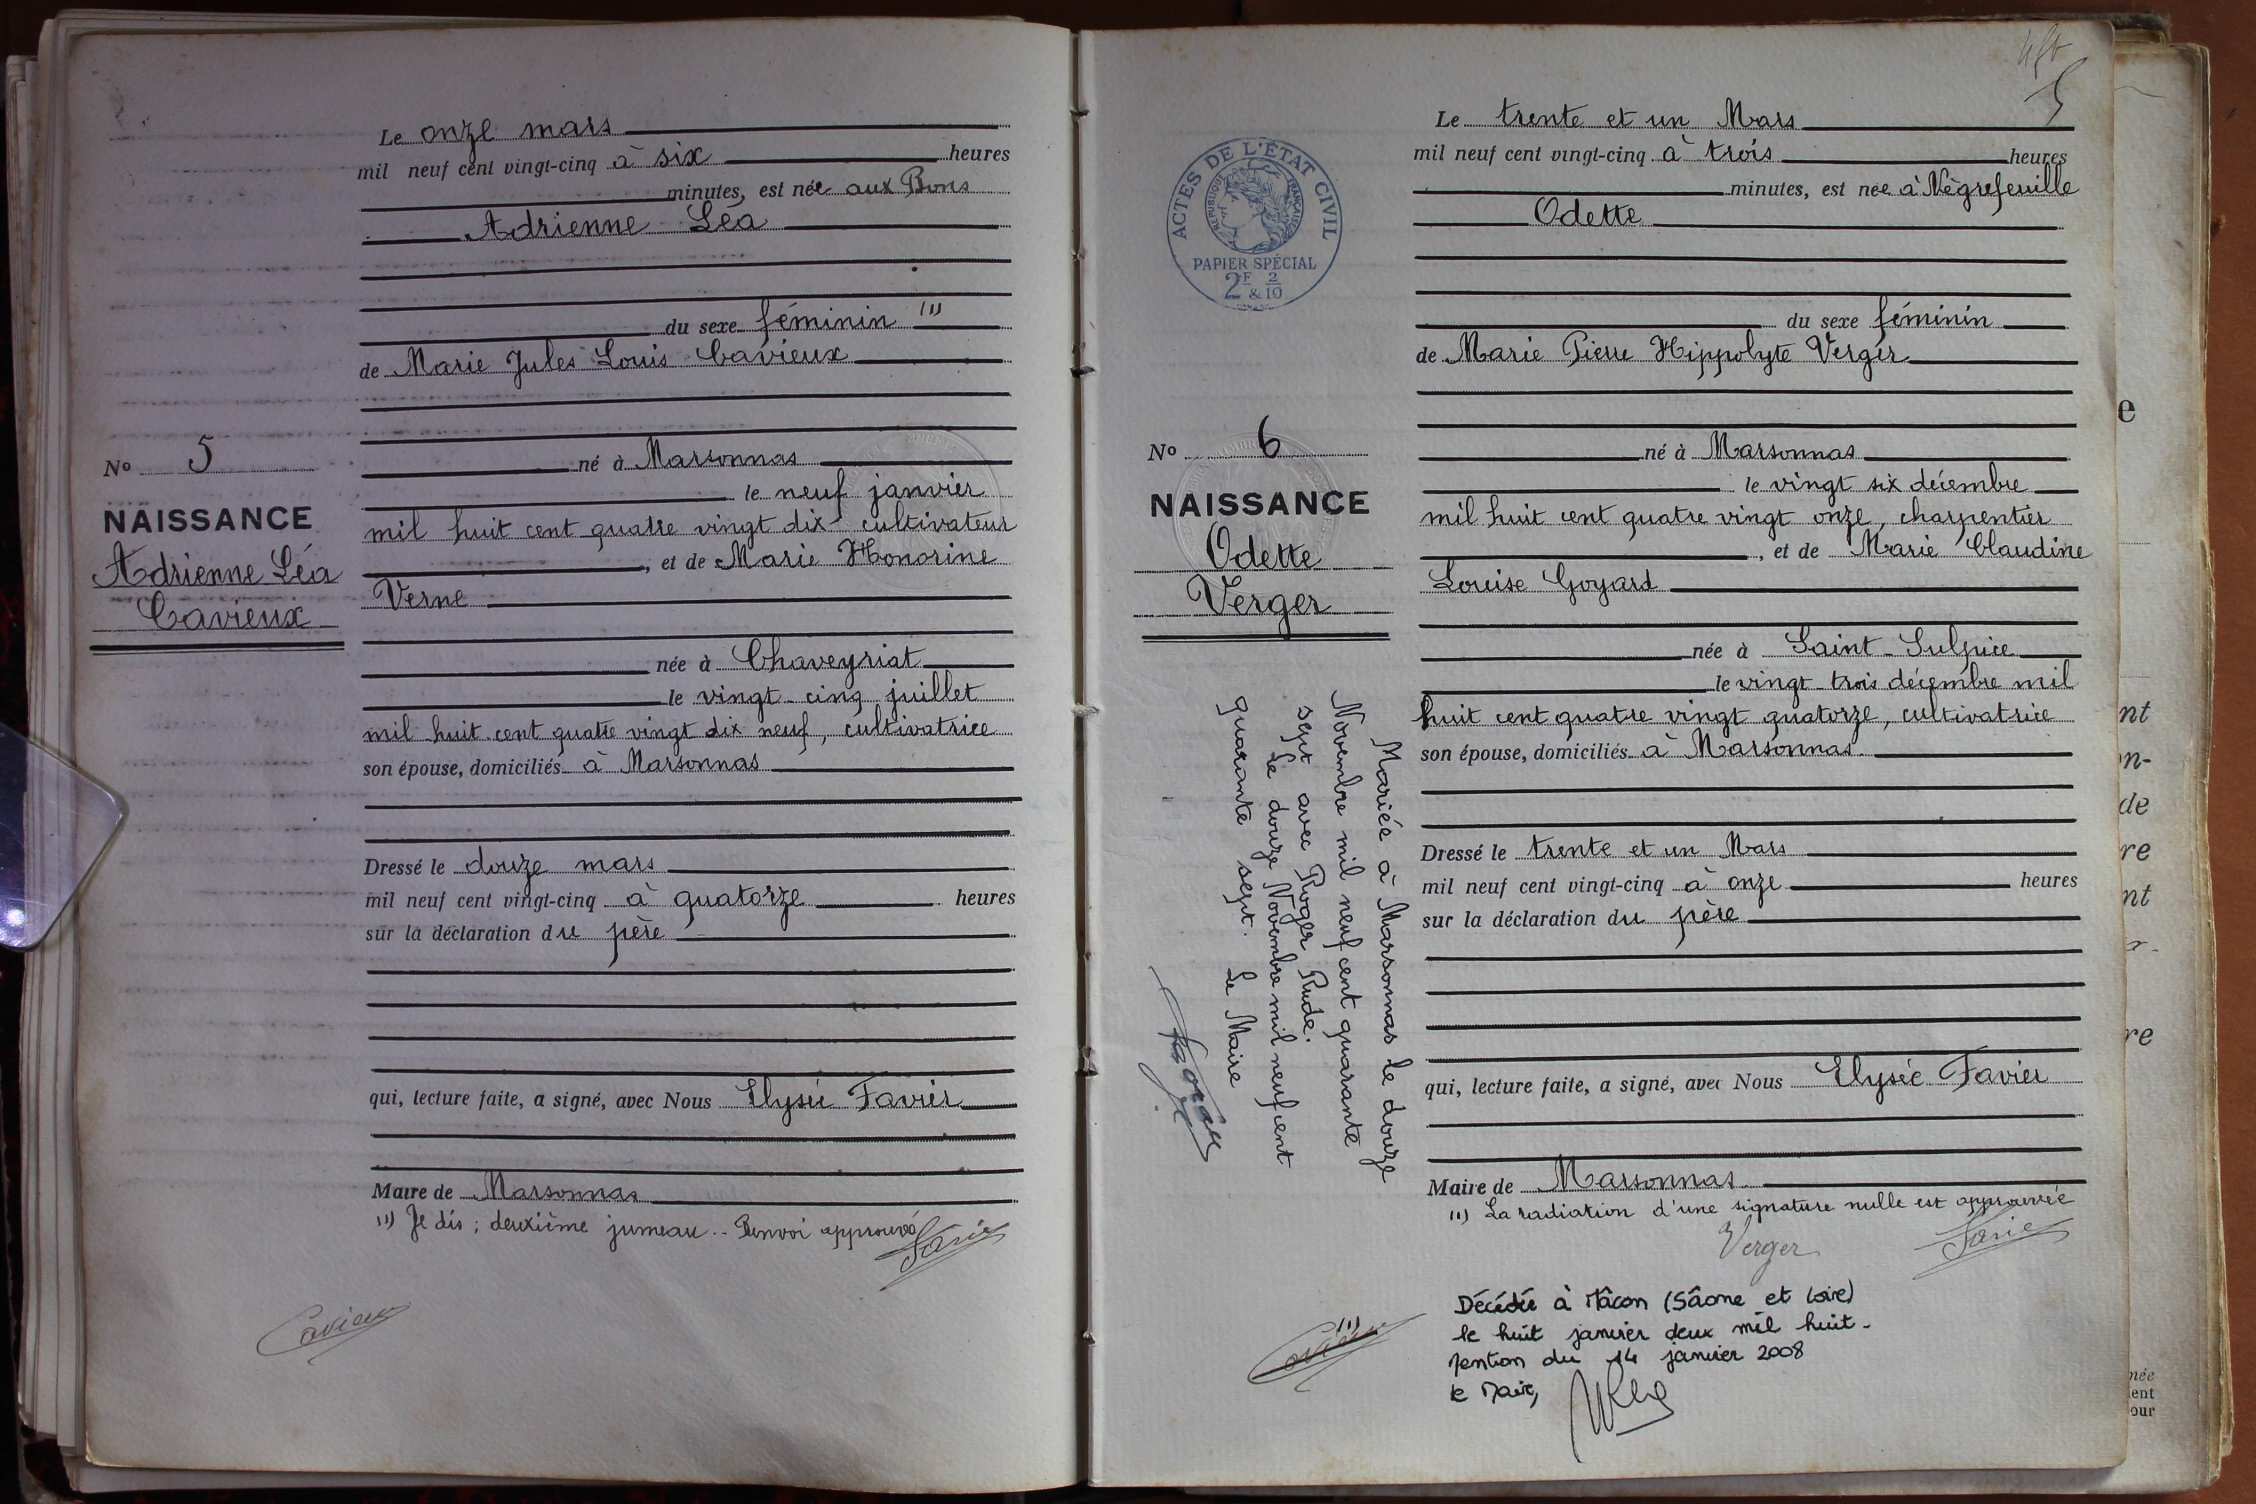 Le onze mars
mil neuf cent vingt-cinq à six heures
minutes, est née aux Bons
Adrienne Léa
du sexe féminin (1)
de Marie Jules Louis Cavieux
né à Marsonnas
le neuf janvier
mil huit cent quatre vingt dix cultivateur
, et de Marie Honorine
Verne
née à Chaveyriat
le vingt-cinq juillet
mil huit cent quatre vingt dix neuf, cultivatrice
son épouse, domiciliés à Marsonnas
Dressé le douze mars
mil neuf cent vingt-cinq à quatorze heures
sur la déclaration du père
qui, lecture faite, a signé, avec Nous Elysée Favier
Maire de Marsonnas
(1) Je dis ; deuxième jumeau .. Renvoi approuvé
Cavieux
No 5
NAISSANCE
Adrienne Léa
Cavieux
5
Le trente et un Mars
mil neuf cent vingt-cinq à trois heures
minutes, est née à Nègrefeuille
Odette
du sexe féminin
de Marie Pierre Hippolyte Verger
né à Marsonnas
le vingt six décembre
mil huit cent quatre vingt onze, charpentier
, et de Marie Claudine
Louise Goyard
née à Saint-Sulpice
le vingt-trois décembre mil
huit cent quatre vingt quatorze, cultivatrice
son épouse, domiciliés à Marsonnas.
Dressé le trente et un Mars
mil neuf cent vingt-cinq à onze heures
sur la déclaration du père
qui, lecture faite, a signé, avec Nous Elysée Favier
Maire de Marsonnas
(1) La radiation d'une signature nulle est approuvée
Verger
Décédée à Mâcon (Sâone et Loire)
le huit janvier deux mil huit-
Mention du 14 janvier 2008
le Maire,
ACTES DE L'ÉTAT CIVIL
RÉPUBLIQUE FRANÇAISE
PAPIER SPÉCIAL
2F & 2/10
No 6
NAISSANCE
Odette
Verger
Mariée à Marsonnas le douze
Novembre mil neuf cent quarante
sept avec Roger Rude.
Le douze Novembre mil neuf cent
quarante sept. Le Maire
(1)
e
nt
n-
de
re
nt
r-
re
née
ent
our